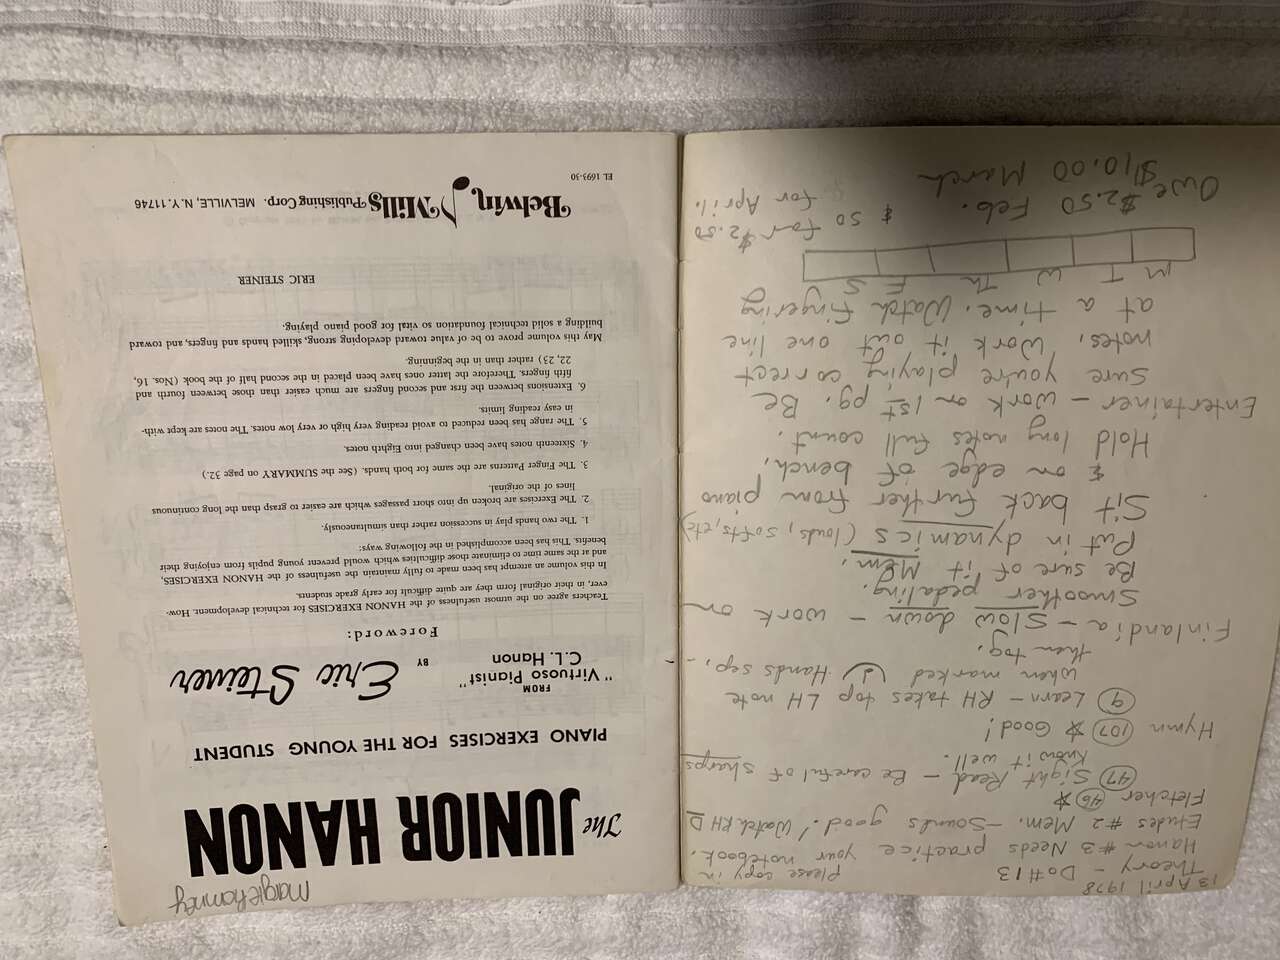 13 April 1978
Theory - Do #13
Please copy in
your notebook.
Hanon #3 Needs practice
Etudes #2 Mem. - Sounds good! Watch RH
Fletcher 46 ☆
47 Sight Read - Be careful of sharps
Know it well.
Hymn 107 ☆ Good!
9 Learn - RH takes top LH note
when marked Hands sep.,
then tog.
Finlandia - Slow down - work on
smoother pedaling.
Be sure of it Mem.
Put in dynamics (louds, softs, etc)
Sit back further from piano
& on edge of bench.
Hold long notes full count.
Entertainer - work on 1st pg. Be
sure you're playing correct
notes. Work it out one line
at a time. Watch fingering
M T W Th F S
Owe $2.50 Feb.
$10.00 March
& 50 for $2.50
for April.
Margie
The
JUNIOR HANON
PIANO EXERCISES FOR THE YOUNG STUDENT
FROM
"Virtuoso Pianist"
C.L. Hanon
BY
Eric Steiner
Foreword:
Teachers agree on the utmost usefulness of the HANON EXERCISES for technical development. How-
ever, in their original form they are quite difficult for early grade students.
In this volume an attempt has been made to fully maintain the usefulness of the HANON EXERCISES,
and at the same time to eliminate those difficulties which would prevent young pupils from enjoying their
benefits. This has been accomplished in the following ways:
1. The two hands play in succession rather than simultaneously.
2. The Exercises are broken up into short passages which are easier to grasp than the long continuous
lines of the original.
3. The Finger Patterns are the same for both hands. (See the SUMMARY on page 32.)
4. Sixteenth notes have been changed into Eighth notes.
5. The range has been reduced to avoid reading very high or very low notes. The notes are kept with-
in easy reading limits.
6. Extensions between the first and second fingers are much easier than those between fourth and
fifth fingers. Therefore the latter ones have been placed in the second half of the book (Nos. 16,
22, 23) rather than in the beginning.
May this volume prove to be of value toward developing strong, skilled hands and fingers, and toward
building a solid technical foundation so vital for good piano playing.
ERIC STEINER
Belwin Mills Publishing Corp. MELVILLE, N.Y. 11746
EL 1693-30